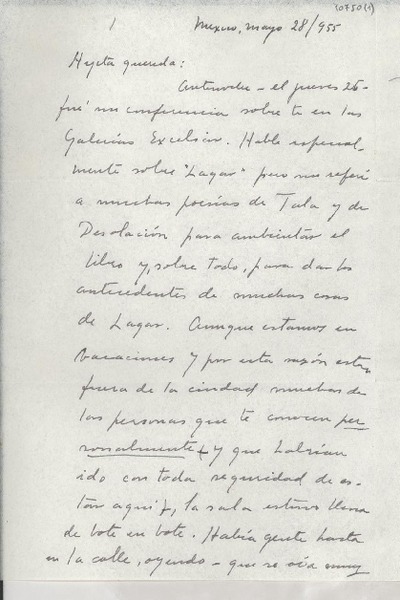 10750(1)
1
Mexico, mayo 28/955
Hijita querida:
Antenoche - el jueves 26 -
fué mi conferencia sobre ti en las
Galerías Excelsior. Hablé especial-
mente sobre "Lagar" pero me referí
a muchas poesías de Tala y de
Desolación para ambientar el
libro y, sobre todo, para dar los
antecedentes de muchas cosas
de Lagar. Aunque estamos en
vacaciones y por esta razón están
fuera de la ciudad muchas de
las personas que te conocen per
sonalmente y que habrían
ido con toda seguridad de es-
tar aquí, la sala estuvo llena
de bote en bote. Había gente hasta
en la calle, oyendo - que se oía muy